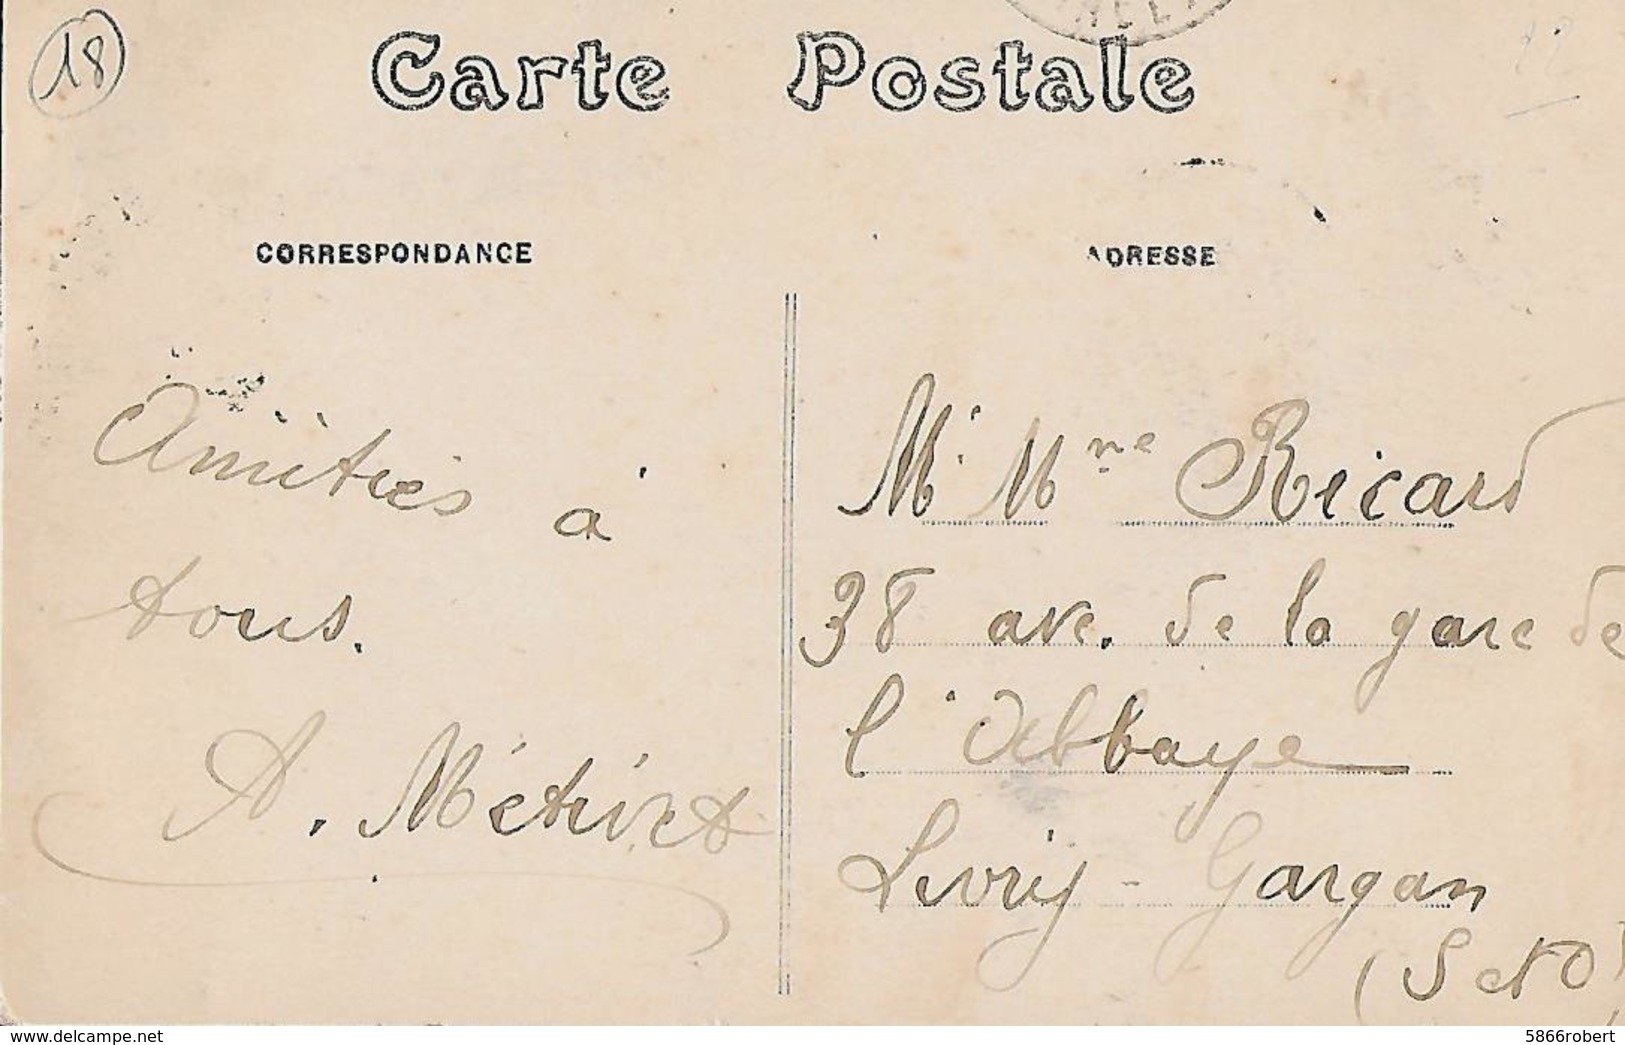 18
Carte Postale
CORRESPONDANCE
Amitiés à
tous.
A. Métivet
ADRESSE
Mr Mme Ricard
38 ave. de la gare de
l'Abbaye
Livry-Gargan
(S et O)
www.delcampe.net
5866robert